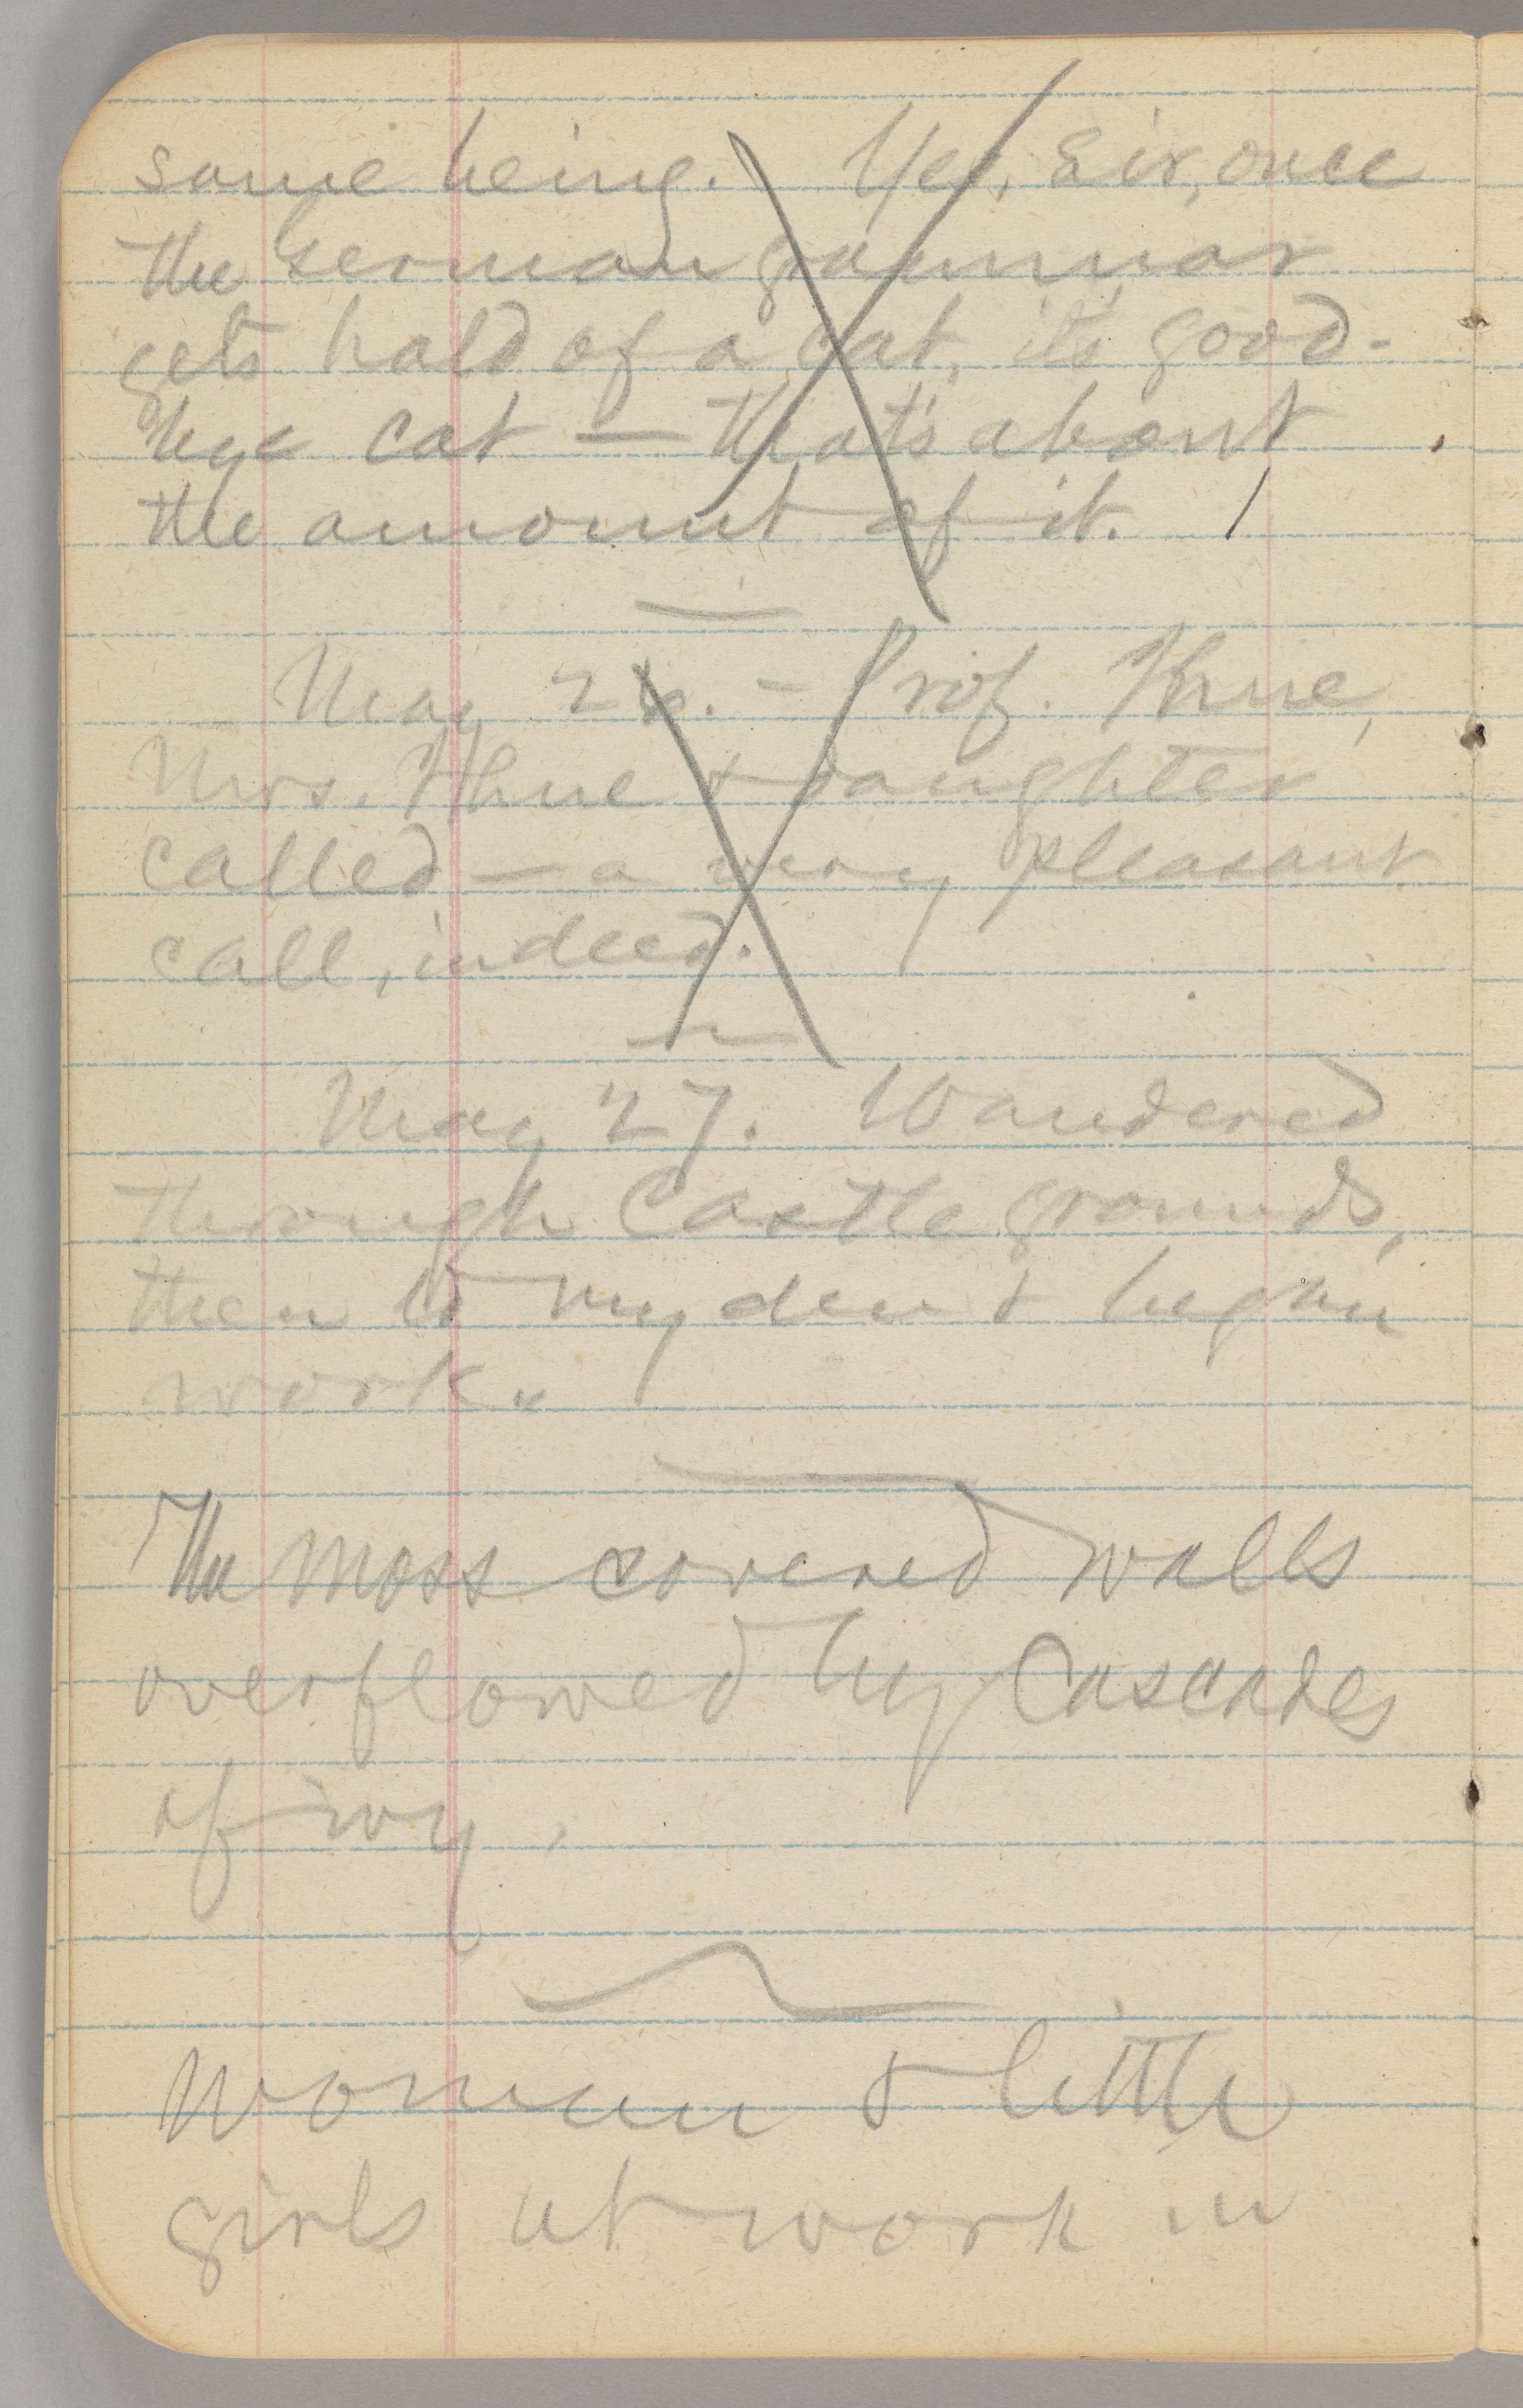 same being. Yes, Sir, once
the German grammar
gets hold of a cat, its good-
bye cat — that's about
the amount of it.
May 26. — Prof. Ihne,
Mrs. Ihne & daughter
called — a very pleasant
call, indeed.
May 27. Wandered
through Castle grounds,
then to my den & began
work.
The moss covered walls
overflowed by Cascades
of ivy.
Woman & little
girls at work in